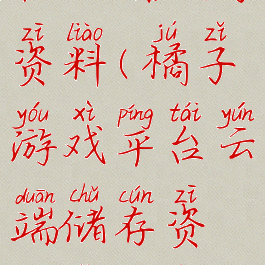 zī liào jú zǐ
资料(橘子
yóu xì píng tái yún
游戏平台云
duān chǔ cún zī
端储存资